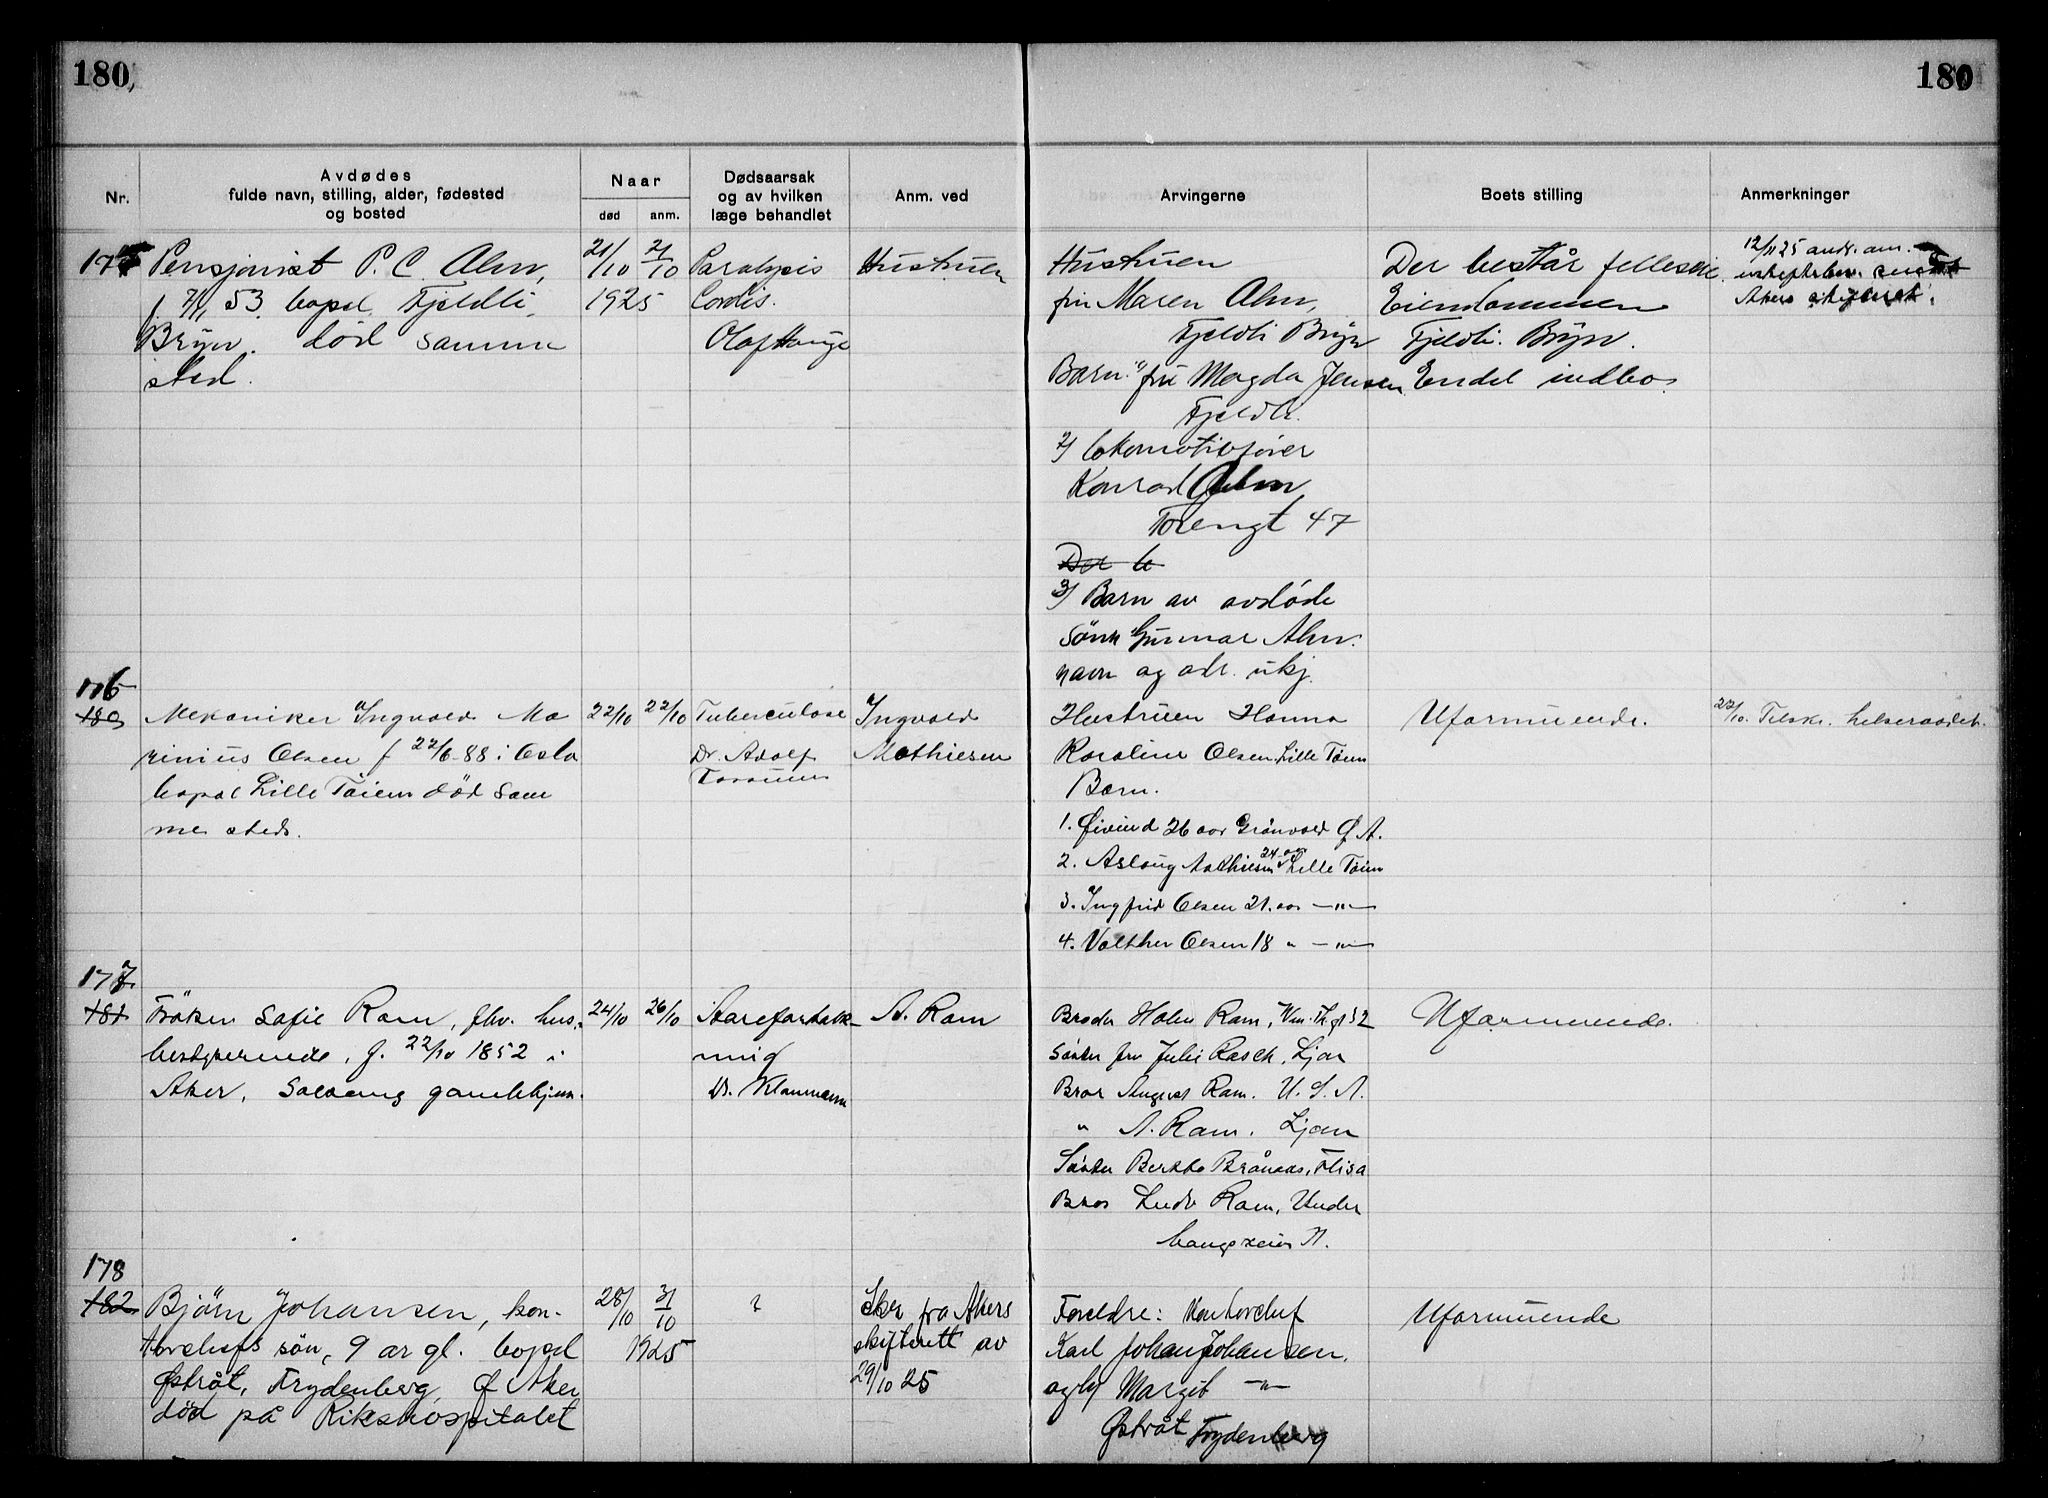 180,
180
Nr.
Avdødes
fulde navn, stilling, alder, fødested
og bosted
Naar
død
anm.
Dødsaarsak
og av hvilken
læge behandlet
Anm. ved
Arvingerne
Boets stilling
Anmerkninger
Pensjonist P. C. Alm,
f. 7/11 53. bopel Fjeldli,
Bryn. død samme
sted.
21/10
21/10
1925
Paralysis
Cordis.
Olaf Hauge
Hustruen
Hustruen
fru Maren Alm,
Fjeldli Bryn
Barn: 1) fru Magda Jensen
Fjeldli.
2) lokomotivfører
Konrad Alm
Torengt 47
Der b
3) Barn av avdøde
sønn Gunnar Alm.
navn og adr. ukj.
Der består felleseie.
Eiendommen
Fjeldli. Bryn.
Endel indbo.
12/11 25 andr. anm.
Akers skifterett.
176
180
Mekaniker Ingvald Ma
rinius Olsen f 22/6-88 i Oslo
bopæl Lille Tøien død sam
me steds.
22/10
22/10
Tuberculose
Dr. Adolf
Ingvald
Mathiesen
Hustruen Hanna
Karoline Olsen, Lille Tøien
Barn.
1. Øivind 26 aar Grønvold Ø. A.
2. Aslaug Mathiesen 24 aar Lille Tøien
3. Ingfrid Olsen 21. aar —"—
4. Valther Olsen 18 " —"—
Uformuende.
22/10. Tilskr. helseraadet.
177.
181
Frøken Safie Ram, fhv. hus-
bestyrerinde, f. 22/10 1852 i
Aker, Solvang gamlehjem.
24/10
26/10
Aareforkalk-
ning
Dr. Klaumann
A. Ram
Broder Halvor Ram, Vm. Thgt 52
Søster fru Julie Rasch, Ljan
Bror August Ram. U. S. A.
" A. Ram. Ljan
Søster Berthe Brånaas, Flisa
Bror Ludv Ram, Under
haugsveien
Uformuende.
178
182
Bjørn Johansen, kon-
torchefs søn, 9 år gl. bopel
Østråt, Frydenberg, Ø Aker
død på Rikshospitalet
28/10
31/10
1925
?
Skr. fra Akers
skifterett av
29/10 25
Foreldre: Kontorchef
Karl Johan Johansen.
og h/ Margit —"—
Østråt Frydenberg
Uformuende